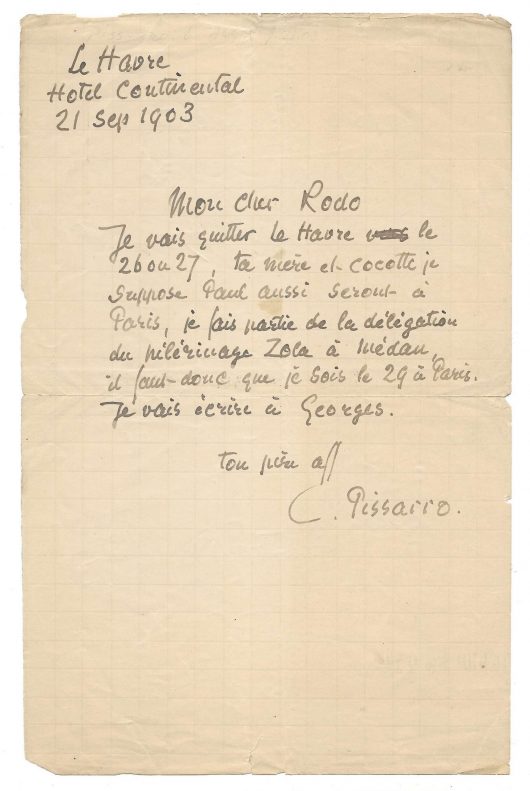 Le Havre
Hotel Continental
21 Sep 1903
Mon cher Rodo
Je vais quitter Le Havre le
26 ou 27, ta mère et Cocotte je
suppose Paul aussi seront à
Paris, je fais partie de la délégation
du pèlérinage Zola à Médan,
il faut donc que je sois le 29 à Paris.
Je vais écrire à Georges.
ton père aff
C. Pissarro.